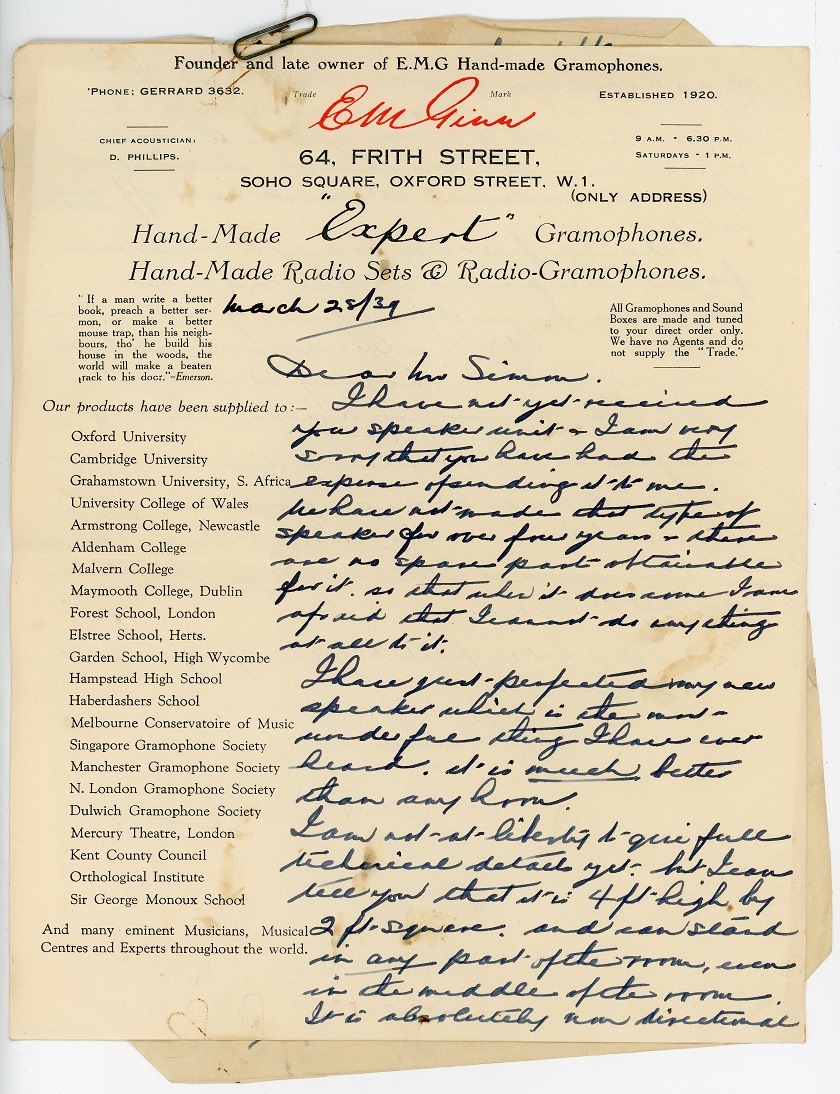 Founder and late owner of E.M.G Hand-made Gramophones.
'PHONE: GERRARD 3632.
Trade
Mark
ESTABLISHED 1920.
EMGinn
CHIEF ACOUSTICIAN:
D. PHILLIPS.
9 A.M. - 6.30 P.M.
SATURDAYS - 1 P.M.
64, FRITH STREET,
SOHO SQUARE, OXFORD STREET, W.1.
(ONLY ADDRESS)
Hand-Made "Expert" Gramophones.
Hand-Made Radio Sets & Radio-Gramophones.
"If a man write a better
book, preach a better ser-
mon, or make a better
mouse trap, than his neigh-
bours, tho' he build his
house in the woods, the
world will make a beaten
track to his door."—Emerson.
All Gramophones and Sound
Boxes are made and tuned
to your direct order only.
We have no Agents and do
not supply the "Trade."
Our products have been supplied to:—
Oxford University
Cambridge University
Grahamstown University, S. Africa
University College of Wales
Armstrong College, Newcastle
Aldenham College
Malvern College
Maymooth College, Dublin
Forest School, London
Elstree School, Herts.
Garden School, High Wycombe
Hampstead High School
Haberdashers School
Melbourne Conservatoire of Music
Singapore Gramophone Society
Manchester Gramophone Society
N. London Gramophone Society
Dulwich Gramophone Society
Mercury Theatre, London
Kent County Council
Orthological Institute
Sir George Monoux School
And many eminent Musicians, Musical
Centres and Experts throughout the world.
March 28/39
Dear Mr Simon.
I have not yet received
your speaker unit & I am very
sorry that you have had the
expense of sending it to me.
We have not made that type of
speaker for over four years & there
are no spare parts obtainable
for it. so that when it does come I am
afraid that I cannot do anything
at all to it.
I have just perfected my new
speaker which is the most
wonderful thing I have ever
heard. it is much better
than any horn.
I am not at liberty to give full
technical details yet. but I can
tell you that it is 4 ft high by
2 ft square. and can stand
in any part of the room, even
in the middle of the room.
It is absolutely non directional